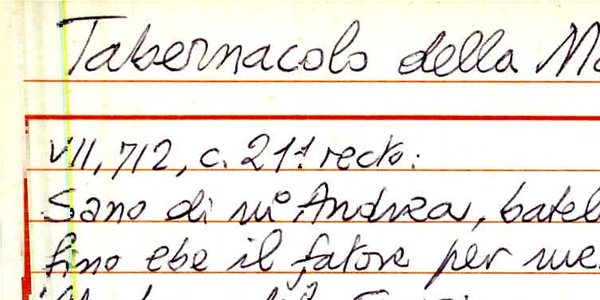 Tabernacolo della Ma
VII, 712, c. 211 recto:
Sano di mº Andrea, batel
fino ebe il fatore per me